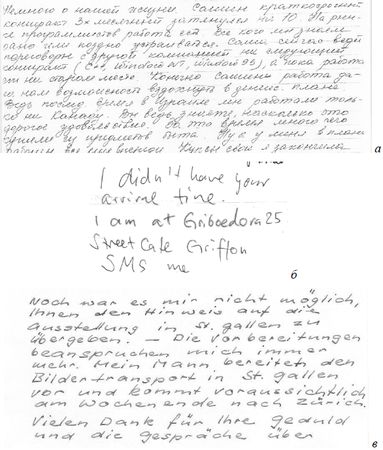 Немного о нашей жизни. Сашин краткосрочный
контракт 3х месячный затянулся на 10. На рын-
ке программистов работа есть. Все кого мы знаем
рано или поздно устраивается. Саша сейчас ведет
переговоры с другой компанией на следующий
контракт (C++ Windows NT, Windows 95), а пока работа-
ет на старом месте. Конечно Сашина работа да-
ла нам возможность вздохнуть в денежн. плане
Ведь последн. время в Украине мы работали толь-
ко на Канаду. Вы ведь знаете, насколько это
дорогое удовольствие! За это время много чего
лета. Ну а у меня в плане
работы все я закончила
а
I didn't have your
arrival time.
I am at Griboedova 25
Street Cafe Griffon
SMS me
б
Noch war es mir nicht möglich,
Ihnen den Hinweis auf die
Ausstellung in St. Gallen zu
übergeben. – Die Vorbereitungen
beanspruchen mich immer
mehr. Mein Mann bereitet den
Bildertransport in St. Gallen
vor und kommt voraussichtlich
am Wochenende nach Zürich.
Vielen Dank für Ihre Geduld
und die Gespräche über
в